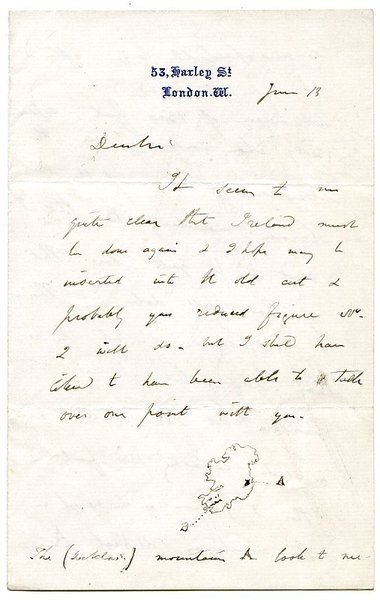 53, Harley St
London. W.
June 13
Dear Sir
It seems to me
quite clear that Ireland must
be done again & I hope may be
inserted into the old cut &
probably your reduced figure No.
2 will do - but I shd have
liked to have been able to talk
over one point with you.
A
B
The mountains do look to me